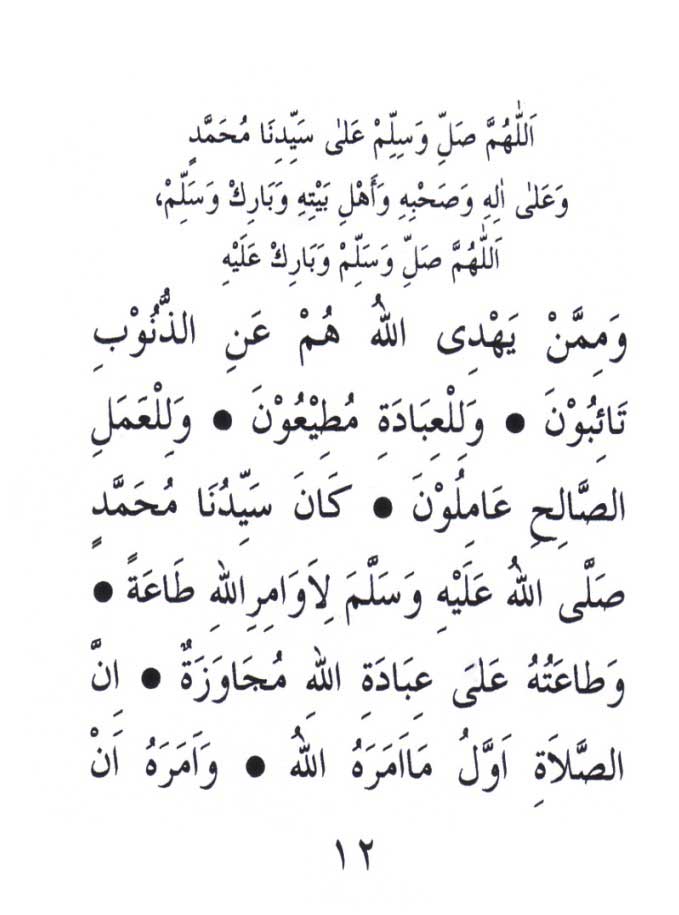 اَللّٰهُمَّ صَلِّ وَسِلِّمْ عَلٰى سَيِّدِنَا مُحَمَّدٍ
وَعَلٰى اٰلِهِ وَصَحْبِهِ وَأَهْلِ بَيْتِهِ وَبَارِكْ وَسَلِّمْ،
اَللّٰهُمَّ صَلِّ وَسَلِّمْ وَبَارِكْ عَلَيْهِ
وَمِمَّنْ يَهْدِى اللهُ هُمْ عَنِ الذُّنُوْبِ
تَائِبُوْنَ ● وَلِلْعِبَادَةِ مُطِيْعُوْنَ ● وَلِلْعَمَلِ
الصَّالِحِ عَامِلُوْنَ ● كَانَ سَيِّدُنَا مُحَمَّدٍ
صَلَّى اللهُ عَلَيْهِ وَسَلَّمَ لِاَوَامِرِاللهِ طَاعَةً ●
وَطَاعَتُهُ عَلىَ عِبَادَةِ اللهِ مُجَاوَزَةٌ ● اِنَّ
الصَّلَاةِ اَوَّلُ مَااَمَرَهُ اللهُ ● وَاَمَرَهُ اَنْ
١٢